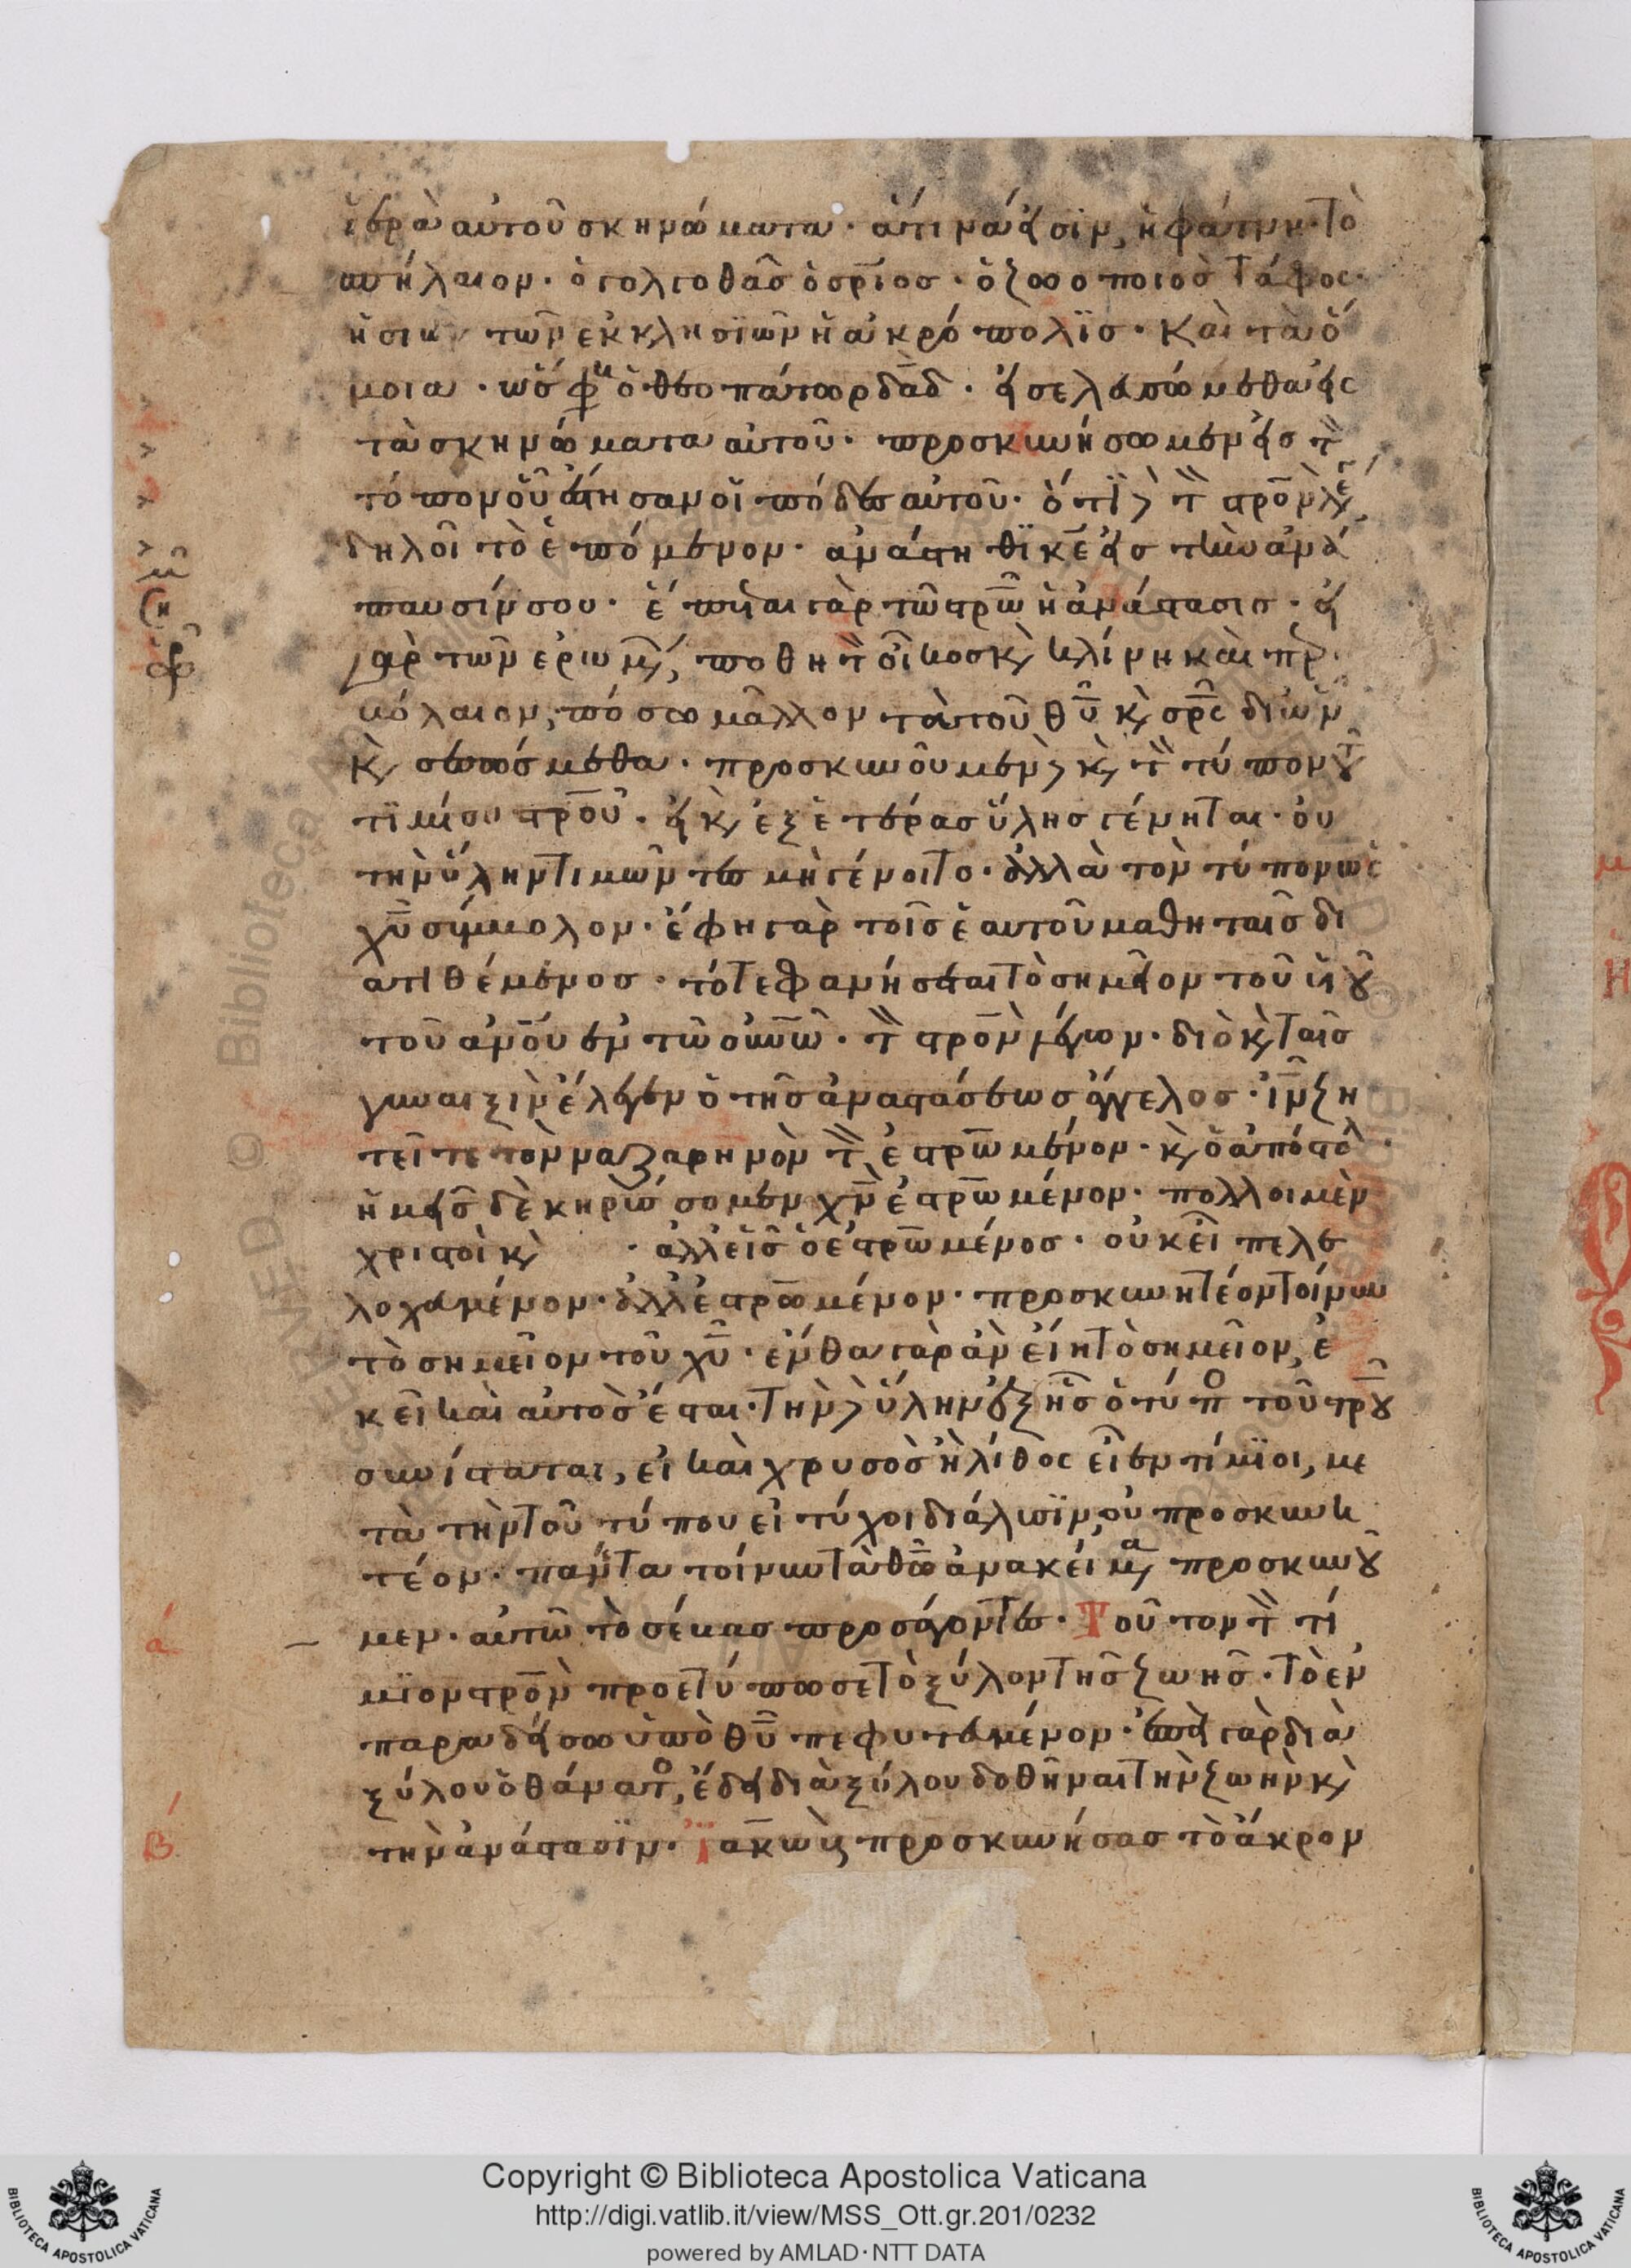 ἱερὰ αὐτοῦ σκηνώματα· ἅτινά εἰσιν, ἡ φάτνη· τὸ
σπήλαιον· ὁ γολγοθᾶς ὁ σ̅ρ̅ιος· ὁ ζωοποιὸς τάφος·
ἡ σιὼν τῶν ἐκκλησϊῶν ἡ ἀκρόπολϊς· καὶ τὰ ὅ
μοια· ὥς φη ὁ θεοπάτωρ δα̅δ· εἰσελευσώμεθα εἰς
τὰ σκηνώματα αὐτοῦ· προσκυνήσωμεν εἰς τὸν
τόπον οὗ ἔστησαν οἱ πόδες αὐτοῦ· ὅτϊ δὲ τὸν στρο̅ν λέγει,
δηλοῖ τὸ ἑπόμενον· ἀνάστηθϊ κ̅ε εἰς τὴν ἀνά
παυσίν σου· ἕπεται γὰρ τῶ στρω̅ ἡ ἀνάστασις· εἰ
γὰρ τῶν ἐρωμ, ποθητὸν οἶκος κ κλίνη καὶ περι
βόλαιον, πόσω μᾶλλον τὰ τοῦ θ̅υ κ σ̅ρ̅ς δι' ὧν
κ σεσώσμεθα· προσκυνοῦμεν δὲ κ τὸν τύπον τοῦ
τϊμίου στρο̅υ· εἰ κ ἐξ ἑτέρας ὕλης γένηται· οὐ
τὴν ὕλην τιμῶντες μὴ γένοιτο· ἀλλὰ τὸν τύπον ὡς
χ̅υ σύμβολον· ἔφη γὰρ τοῖς ἑαυτοῦ μαθηταῖς δι
ατιθέμενος· τότε φανήσεται τὸ σημεῖον τοῦ υἱοῦ
τοῦ ἀνο̅υ ἐν τῶ οὐνω̅· τὸν στρο̅ν λέγων· διὸ κ ταῖς
γυναιξὶν ἔλεγεν ὁ τῆς ἀναστάσεως ἄγγελος· ι̅ν ζη
τεῖτε τὸν ναζαρηνὸν τὸν ἐστρω̅μένον· κ ὁ ἀπόστολ·
ἡμεῖς δὲ κηρύσσομεν χ̅ν ἐστρω̅μένον· πολλοι μὲν
χριστοὶ κ · ἀλλ' εἷς ὁ ἐστρω̅μένος· οὐκ εἶπε λε
λογχευμένον· ἀλλ' ἐστρω̅μένον· προσκυνητέον τοίνυν
τὸ σημεῖον τοῦ χ̅υ· ἔνθα γὰρ ἂν εἴη τὸ σημεῖον, ἐ
κεῖ καὶ αὐτὸς ἔσται· τὴν δὲ ὕλην ἐξ ἧς ὁ τύπο τοῦ στρ̅οῦ
συνίσταται, εἰ καὶ χρυσὸς ἢ λίθος εἶεν τίμϊοι, με
τὰ τὴν τοῦ τύπου εἰ τύχοι διάλυσϊν, οὐ προσκυνη
τέον· πάντα τοίνυν τὰ θω̅ ἀνακείμενα προσκυνοῦ
μεν· αὐτῶ τὸ σέβας προσάγοντες· Τοῦτον τὸν τί
μϊον στρο̅ν προετύπωσε τὸ ξύλον τῆς ζωῆς· τὸ ἐν
παραδείσω ὑπὸ θ̅υ πεφυτευμένον· ἐπεὶ γὰρ διὰ
ξύλου ὁ θάνατο, ἔδει διὰ ξύλου δοθῆναι τὴν ζωὴν κ
τὴν ἀνάστασϊν· Ϊακὼβ προσκυνήσας τὸ ἄκρον
α
β
Copyright © Biblioteca Apostolica Vaticana
http://digi.vatlib.it/view/MSS_Ott.gr.201/0232
powered by AMLAD·NTT DATA
BIBLIOTECA APOSTOLICA VATICANA
BIBLIOTECA APOSTOLICA VATICANA